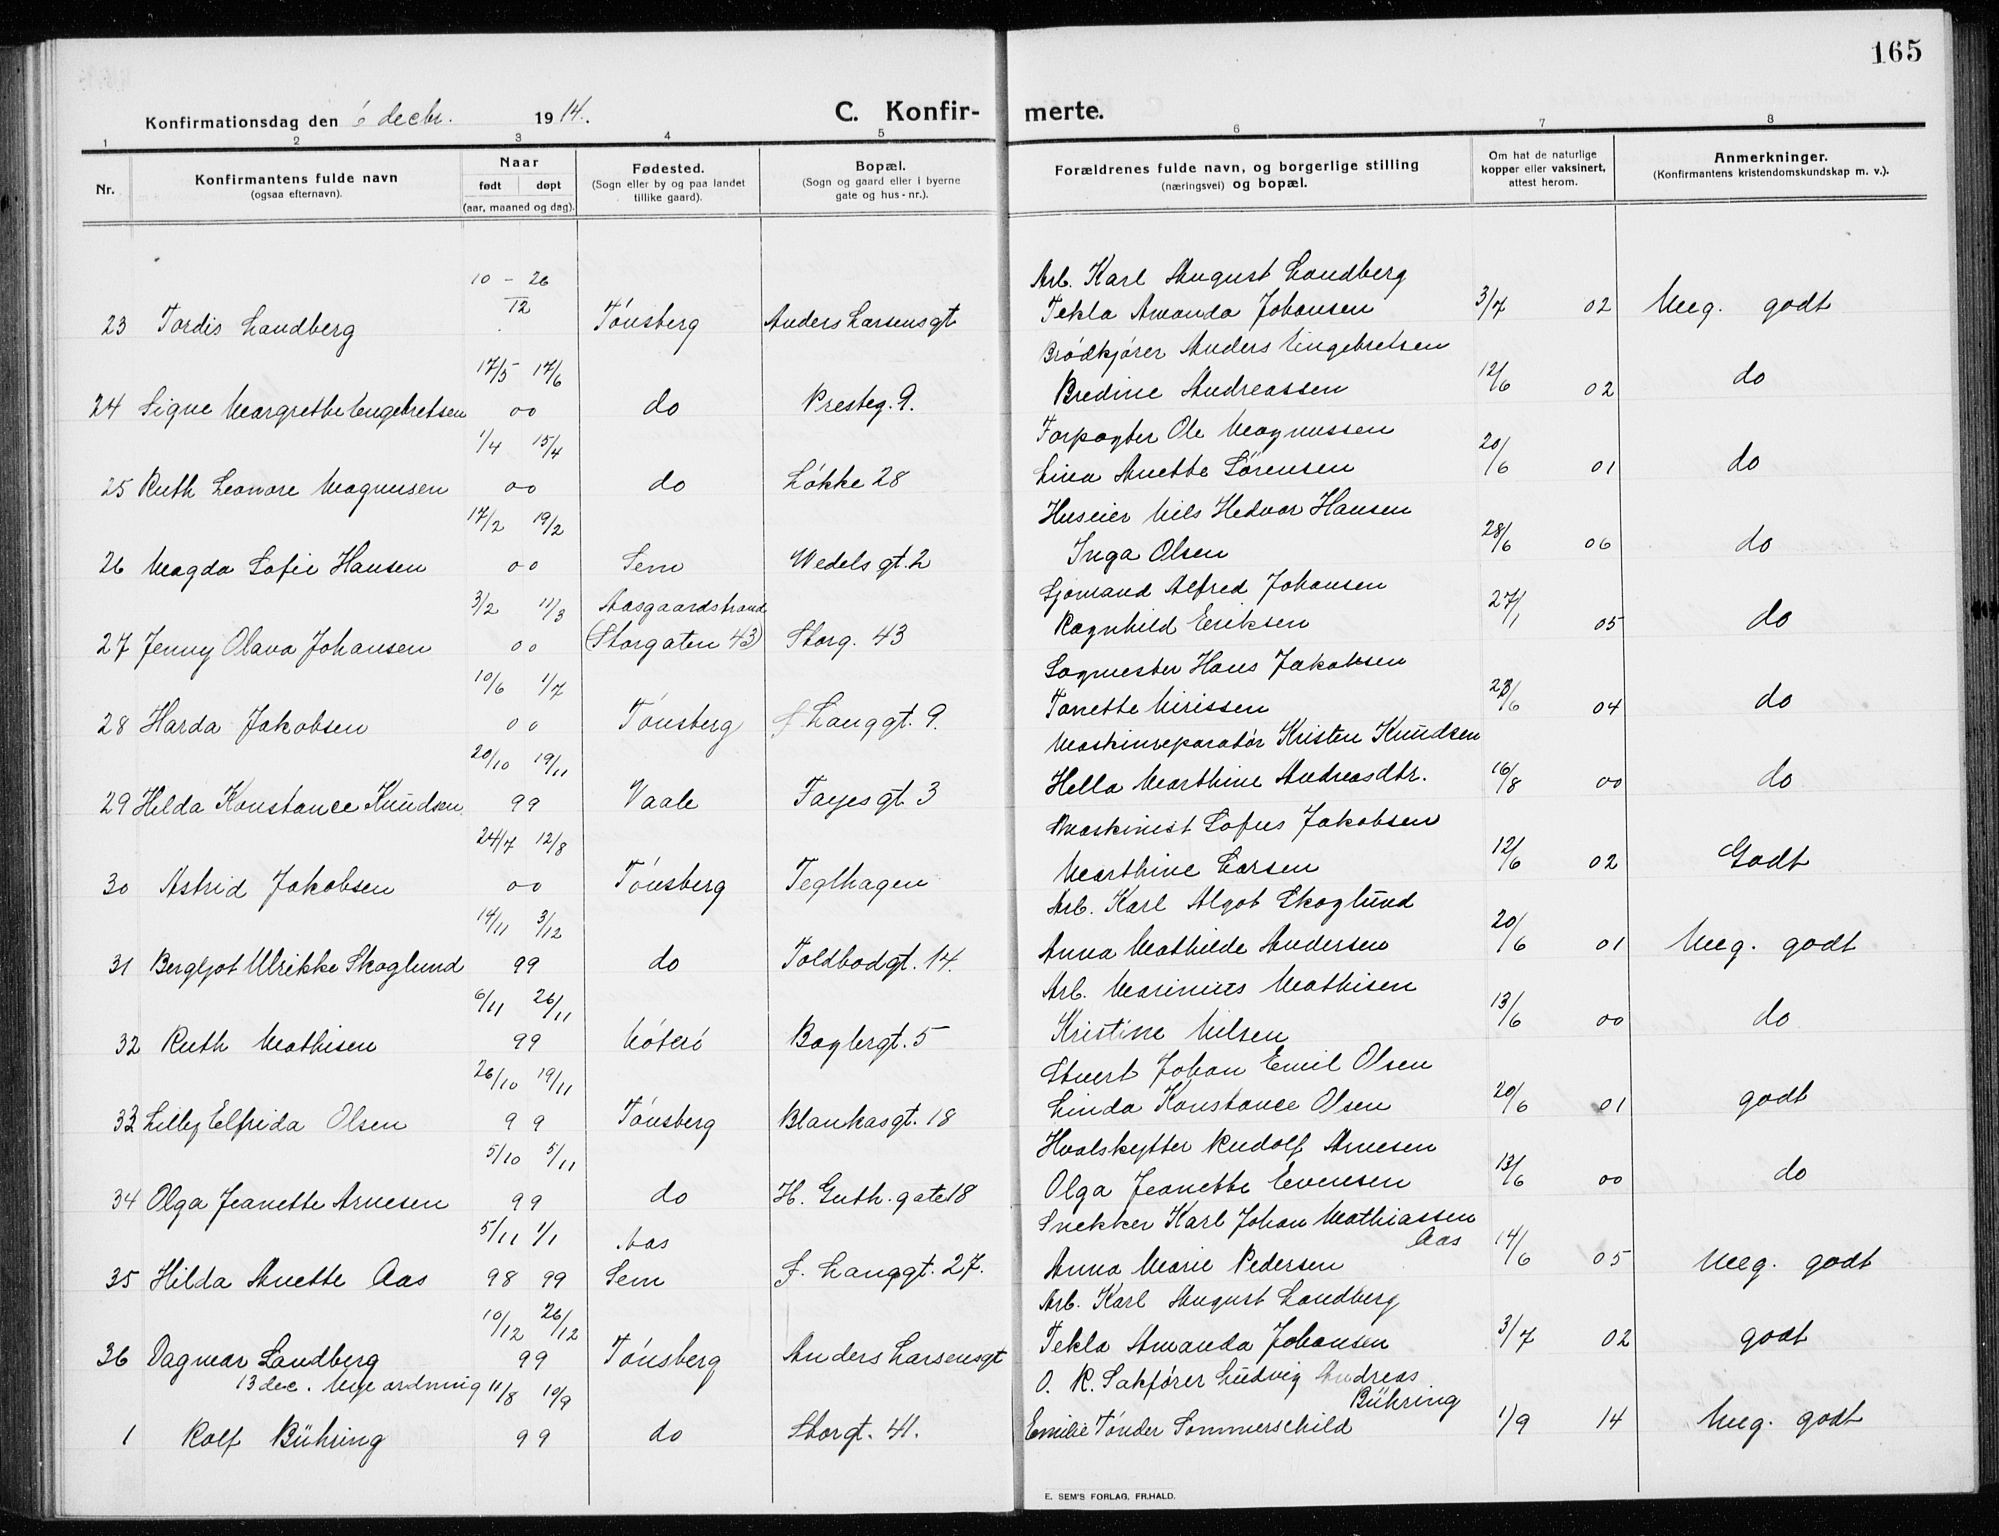 165
Konfirmationsdag den 6 decbr. 1914.
C. Konfir-merte.
1 2 3 4 5 6 7 8
Nr.
Konfirmantens fulde navn
(ogsaa efternavn).
Naar
født døpt
(aar, maaned og dag).
Fødested.
(Sogn eller by og paa landet
tillike gaard).
Bopæl.
(Sogn og gaard eller i byerne
gate og hus-nr.).
Forældrenes fulde navn, og borgerlige stilling
(næringsvei) og bopæl.
Om hat de naturlige
kopper eller vaksinert,
attest herom.
Anmerkninger.
(Konfirmantens kristendomskundskap m. v.).
10 - 26 Arb. Karl August Landberg
12
23 Tordis Landberg Tønsberg Anders Larsensgt Tekla Amanda Johansen 3/7 02 Meg. godt
17/5 17/6 Brødkjører Anders Engebretsen
24 Signe Margrethe Engebretsen 00 do Presteg. 9. Bredine Andreassen 12/6 02 do
1/4 15/4 Forpagter Ole Magnussen
25 Ruth Leonore Magnusen 00 do Løkke 28 Lina Anette Sørensen 20/6 01 do
17/2 19/2 Huseier Nils Hedvar Hansen
26 Magda Sofie Hansen 00 Sem Wedels gt. 2 Inga Olsen 28/6 06 do
3/2 11/3 Aasgaardstrand Sjømand Alfred Johansen
27 Jenny Olava Johansen 00 (Storgaten 43) Storg. 43 Ragnhild Eriksen 27/1 05 do
10/6 1/7 Sagmester Hans Jakobsen
28 Harda Jakobsen 00 Tønsberg f Langgt. 9. Tonette Nirissen 23/6 04 do
20/10 19/11 Maskinreparatør Kristen Knudsen
29 Hilda Konstance Knudsen 99 Vaale Fayesgt. 3 Hella Marthine Andreasdtr. 16/8 00 do
24/7 12/8 Maskinist Sofus Jakobsen
30 Astrid Jakobsen 00 Tønsberg Teglhagen Marthine Larsen 12/6 02 Godt
14/11 3/12 Arb. Karl Algot Skoglund
31 Bergljot Ulrikke Skoglund 99 do Toldbodgt. 14. Anna Mathilde Andersen 20/6 01 Meg. godt
6/11 26/11 Arb. Marinius Mathisen
32 Ruth Mathisen 99 Nøterø Baglergt. 5 Kristine Nilsen 13/6 00 do
26/10 19/11 Stuert Johan Emil Olsen
33 Lilly Elfrida Olsen 99 Tønsberg Blankasgt. 18 Linda Konstance Olsen 20/6 01 godt
5/10 5/11 Hvalskytter Rudolf Arnesen
34 Olga Jeanette Arnesen 99 do H. Guth. gate 18 Olga Jeanette Evensen 13/6 00 do
5/11 1/1 Aas Snekker Karl Johan Mathiassen
Aas
35 Hilda Anette Aas 98 99 Sem f. Langgt. 27. Anna Marie Pedersen 14/6 05 Meg. godt
10/12 26/12 Arb. Karl August Landberg
36 Dagmar Landberg 99 Tønsberg Anders Larsensgt Tekla Amanda Johansen 3/7 02 godt
13 dec. Nye ordning 11/8 10/9 O. R. Sakfører Ludvig Andreas
Bühring
1 Rolf Bühring 99 do Storgt. 41. Emilie Tønder Sommerschild 1/9 14 Meg. godt
E. SEM'S FORLAG, FR.HALD.